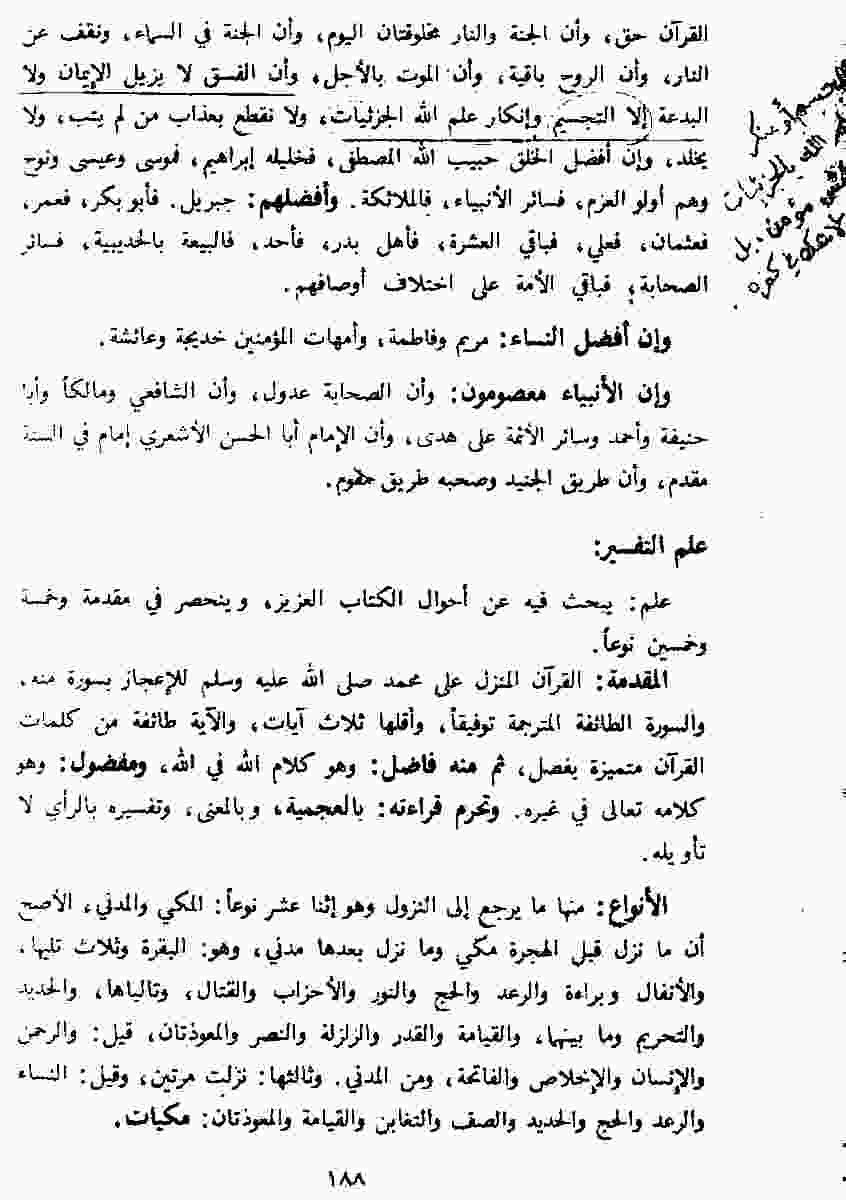 القرآن حق، وأن الجنة والنار مخلوقتان اليوم، وأن الجنة في السماء، ونقف عن
النار، وأن الروح باقية، وأن الموت بالأجل، وأن الفسق لا يزيل الإيمان ولا
البدعة إلا التجسيم وإنكار علم الله الجزئيات، ولا نقطع بعذاب من لم يتب، ولا
يخلد، وإن أفضل الخلق حبيب الله المصطفى، فخليله إبراهيم، فموسى وعيسى ونوح
وهم أولو العزم، فسائر الأنبياء، فالملائكة. وأفضلهم: جبريل. فأبو بكر، فعمر،
فعثمان، فعلي، فباقي العشرة، فأهل بدر، فأحد، فالبيعة بالحديبية، فسائر
الصحابة، فباقي الأمة على اختلاف أوصافهم.
وإن أفضل النساء: مريم وفاطمة، وأمهات المؤمنين خديجة وعائشة.
وإن الأنبياء معصومون: وأن الصحابة عدول، وأن الشافعي ومالكاً وأبا
حنيفة وأحمد وسائر الأئمة على هدى، وأن الإمام أبا الحسن الأشعري إمام في السنة
مقدم، وأن طريق الجنيد وصحبه طريق مقوم.
علم التفسير:
علم: يبحث فيه عن أحوال الكتاب العزيز، وينحصر في مقدمة وخمسة
وخمسين نوعاً.
المقدمة: القرآن المنزل على محمد صلى الله عليه وسلم للإعجاز بسورة منه.
والسورة الطائفة المترجمة توقيفاً، وأقلها ثلاث آيات، والآية طائفة من كلمات
القرآن متميزة بفصل، ثم منه فاضل: وهو كلام الله في الله، ومفضول: وهو
كلامه تعالى في غيره. وتحرم قراءته: بالعجمية، وبالمعنى، وتفسيره بالرأي لا
تأويله.
الأنواع: منها ما يرجع إلى النزول وهو إثنا عشر نوعاً: المكي والمدني، الأصح
أن ما نزل قبل الهجرة مكي وما نزل بعدها مدني، وهو: البقرة وثلاث تليها.
والأنفال وبراءة والرعد والحج والنور والأحزاب والقتال، وتالياها، والحديد
والتحريم وما بينها، والقيامة والقدر والزلزلة والنصر والمعوذتان، قيل: والرحمن
والإنسان والإخلاص والفاتحة، ومن المدني. وثالثها: نزلت مرتين، وقيل: النساء
والرعد والحج والحديد والصف والتغابن والقيامة والمعوذتان: مكيات.
١٨٨